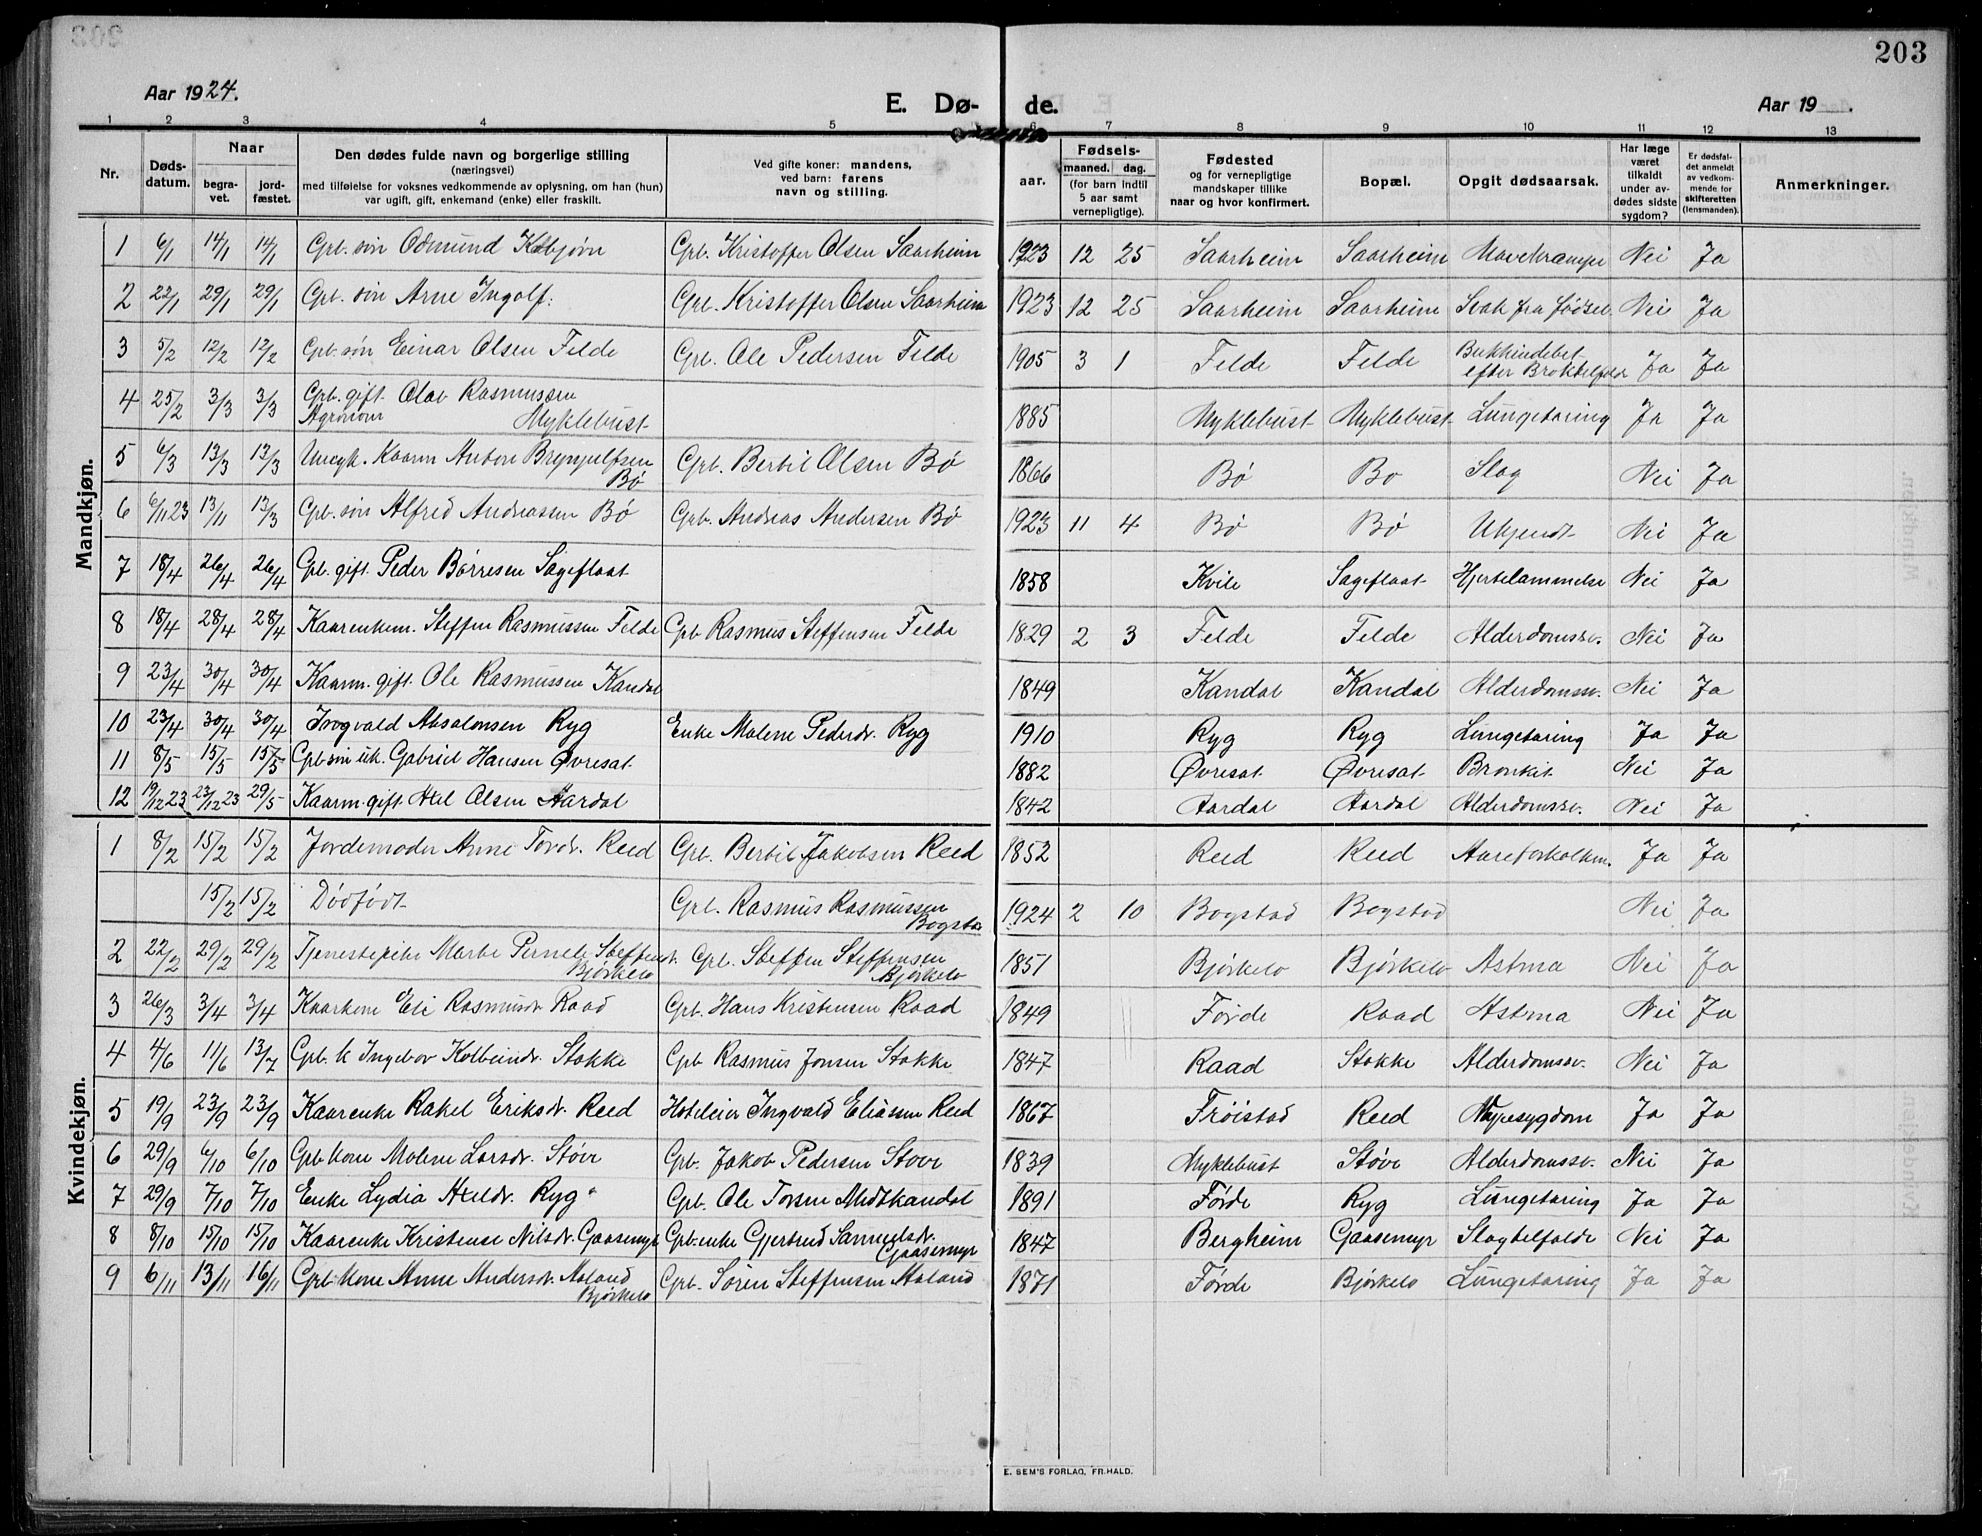 203
Aar 1924.
E. Dø- de.
Aar 19 .
1 2 3 4 5 6 7 8 9 10 11 12 13
Nr. Dødsdatum. Naar begravet. jordfæstet. Den dødes fulde navn og borgerlige stilling (næringsvei) med tilføielse for voksnes vedkommende av oplysning, om han (hun) var ugift, gift, enkemand (enke) eller fraskilt. Ved gifte koner: mandens, ved barn: farens navn og stilling. aar. Fødsels- maaned. dag. (for barn indtil 5 aar samt vernepligtige). Fødested og for vernepligtige mandskaper tillike naar og hvor konfirmert. Bopæl. Opgit dødsaarsak. Har læge været tilkaldt under avdødes sidste sygdom? Er dødsfaldet anmeldt av vedkommende for skifteretten (lensmanden). Anmerkninger.
Mandkjøn.
1 6/1 14/1 14/1 Grb. søn Odmund Kolbjørn Grb. Kristoffer Olsen Saarheim 1923 12 25 Saarheim Saarheim Mavekrampe Nei Ja
2 22/1 29/1 29/1 Grb. søn Arne Ingolf. Grb. Kristoffer Olsen Saarheim 1923 12 25 Saarheim Saarheim Svak fra fødsel Nei Ja
3 5/2 12/2 12/2 Grb. søn Einar Olsen Felde Grb. Ole Pedersen Felde 1905 3 1 Felde Felde Bukhindebet. efter Ja Ja
4 25/2 3/3 3/3 Grb. gift. Olav Rasmussen Agronom Myklebust 1885 Myklebust Myklebust Lungetæring Ja Ja
5 6/3 13/3 13/3 Kaarm Anton Brynjulfsen Bø Grb. Bertil Olsen Bø 1866 Bø Bø Slag Nei Ja
6 6/11 23 13/11 13/3 Grb. søn Alfred Andreassen Bø Grb. Andreas Andersen Bø 1923 11 4 Bø Bø Ukjendt Nei Ja
7 18/4 26/4 26/4 Grb. gift. Peder Børresen Sageflaat 1858 Kvile Sageflaat Hjertelammelse Nei Ja
8 18/4 28/4 28/4 Kaarenkem. Steffen Rasmussen Felde Grb Rasmus Steffensen Felde 1829 2 3 Felde Felde Alderdomssv. Nei Ja
9 23/4 30/4 30/4 Kaarm. gift. Ole Rasmussen Kandal 1849 Kandal Kandal Alderdomssv. Nei Ja
10 23/4 30/4 30/4 Ingvald Absalonsen Ryg Enke Malene Pedersdr. Ryg 1910 Ryg Ryg Lungetæring Ja Ja
11 8/5 15/5 15/5 Grb søn uk. Gabriel Hansen Øvresat 1882 Øvresat Øvresat Bronkit Nei Ja
12 19/12 23 23/12 23 29/5 Kaarm. gift. Olsen Aardal 1842 Aardal Aardal Alderdomssv. Nei Ja
Kvindekjøn.
1 8/2 15/2 15/2 Jordemoder Anne Tordr. Reed Grb. Bertil Jakobsen Reed 1852 Reed Reed Aareforkalkn. Ja Ja
15/2 15/2 Dødfødt Grb. Rasmus Rasmussen Bogstad 1924 2 10 Bogstad Bogstad Nei Ja
2 22/2 29/2 29/2 Tjenestepike Marte Pernele Steffensd. Bjørkelo Grb. Steffen Steffensen Bjørkelo 1851 Bjørkelo Bjørkelo Astma Nei Ja
3 26/3 3/4 3/4 Kaarkone Eli Rasmusdr Raad Grb. Hans Kristensen Raad 1849 Førde Raad Astma Nei Ja
4 4/6 11/6 13/7 Grb. k Ingebor Kolbeindr. Stokke Grb Rasmus Jonsen Stokke 1847 Raad Stokke Alderdomssv. Nei Ja
5 19/9 23/9 23/9 Kaarenke Rakel Eriksdr. Reed Hoteleier Ingvald Eliassen Reed 1867 Frøistad Reed Nyresygdom Ja Ja
6 29/9 6/10 6/10 Grb. kone Malene Larsdr. Støve Grb. Jakob Pedersen Støve 1839 Myklebust Støve Alderdomssv. Nei Ja
7 29/9 7/10 7/10 Enke Lydia Ryg Grb. Ole Torsen Midtkandal 1891 Førde Ryg Lungetæring Ja Ja
8 8/10 15/10 15/10 Kaarenke Kristense Nilsdr. Gaasemyr Grb. enke Gjertrud Samuelsdr. Gaasemyr 1847 Bergheim Gaasemyr Slagtilfælde Nei Ja
9 6/11 13/11 16/11 Grb. kone Anne Andersdr. Aaland Bjørkelo Grb. Søren Steffensen Aaland 1871 Førde Bjørkelo Lungetæring Ja Ja
E. SEM'S FORLAG, FR.HALD.